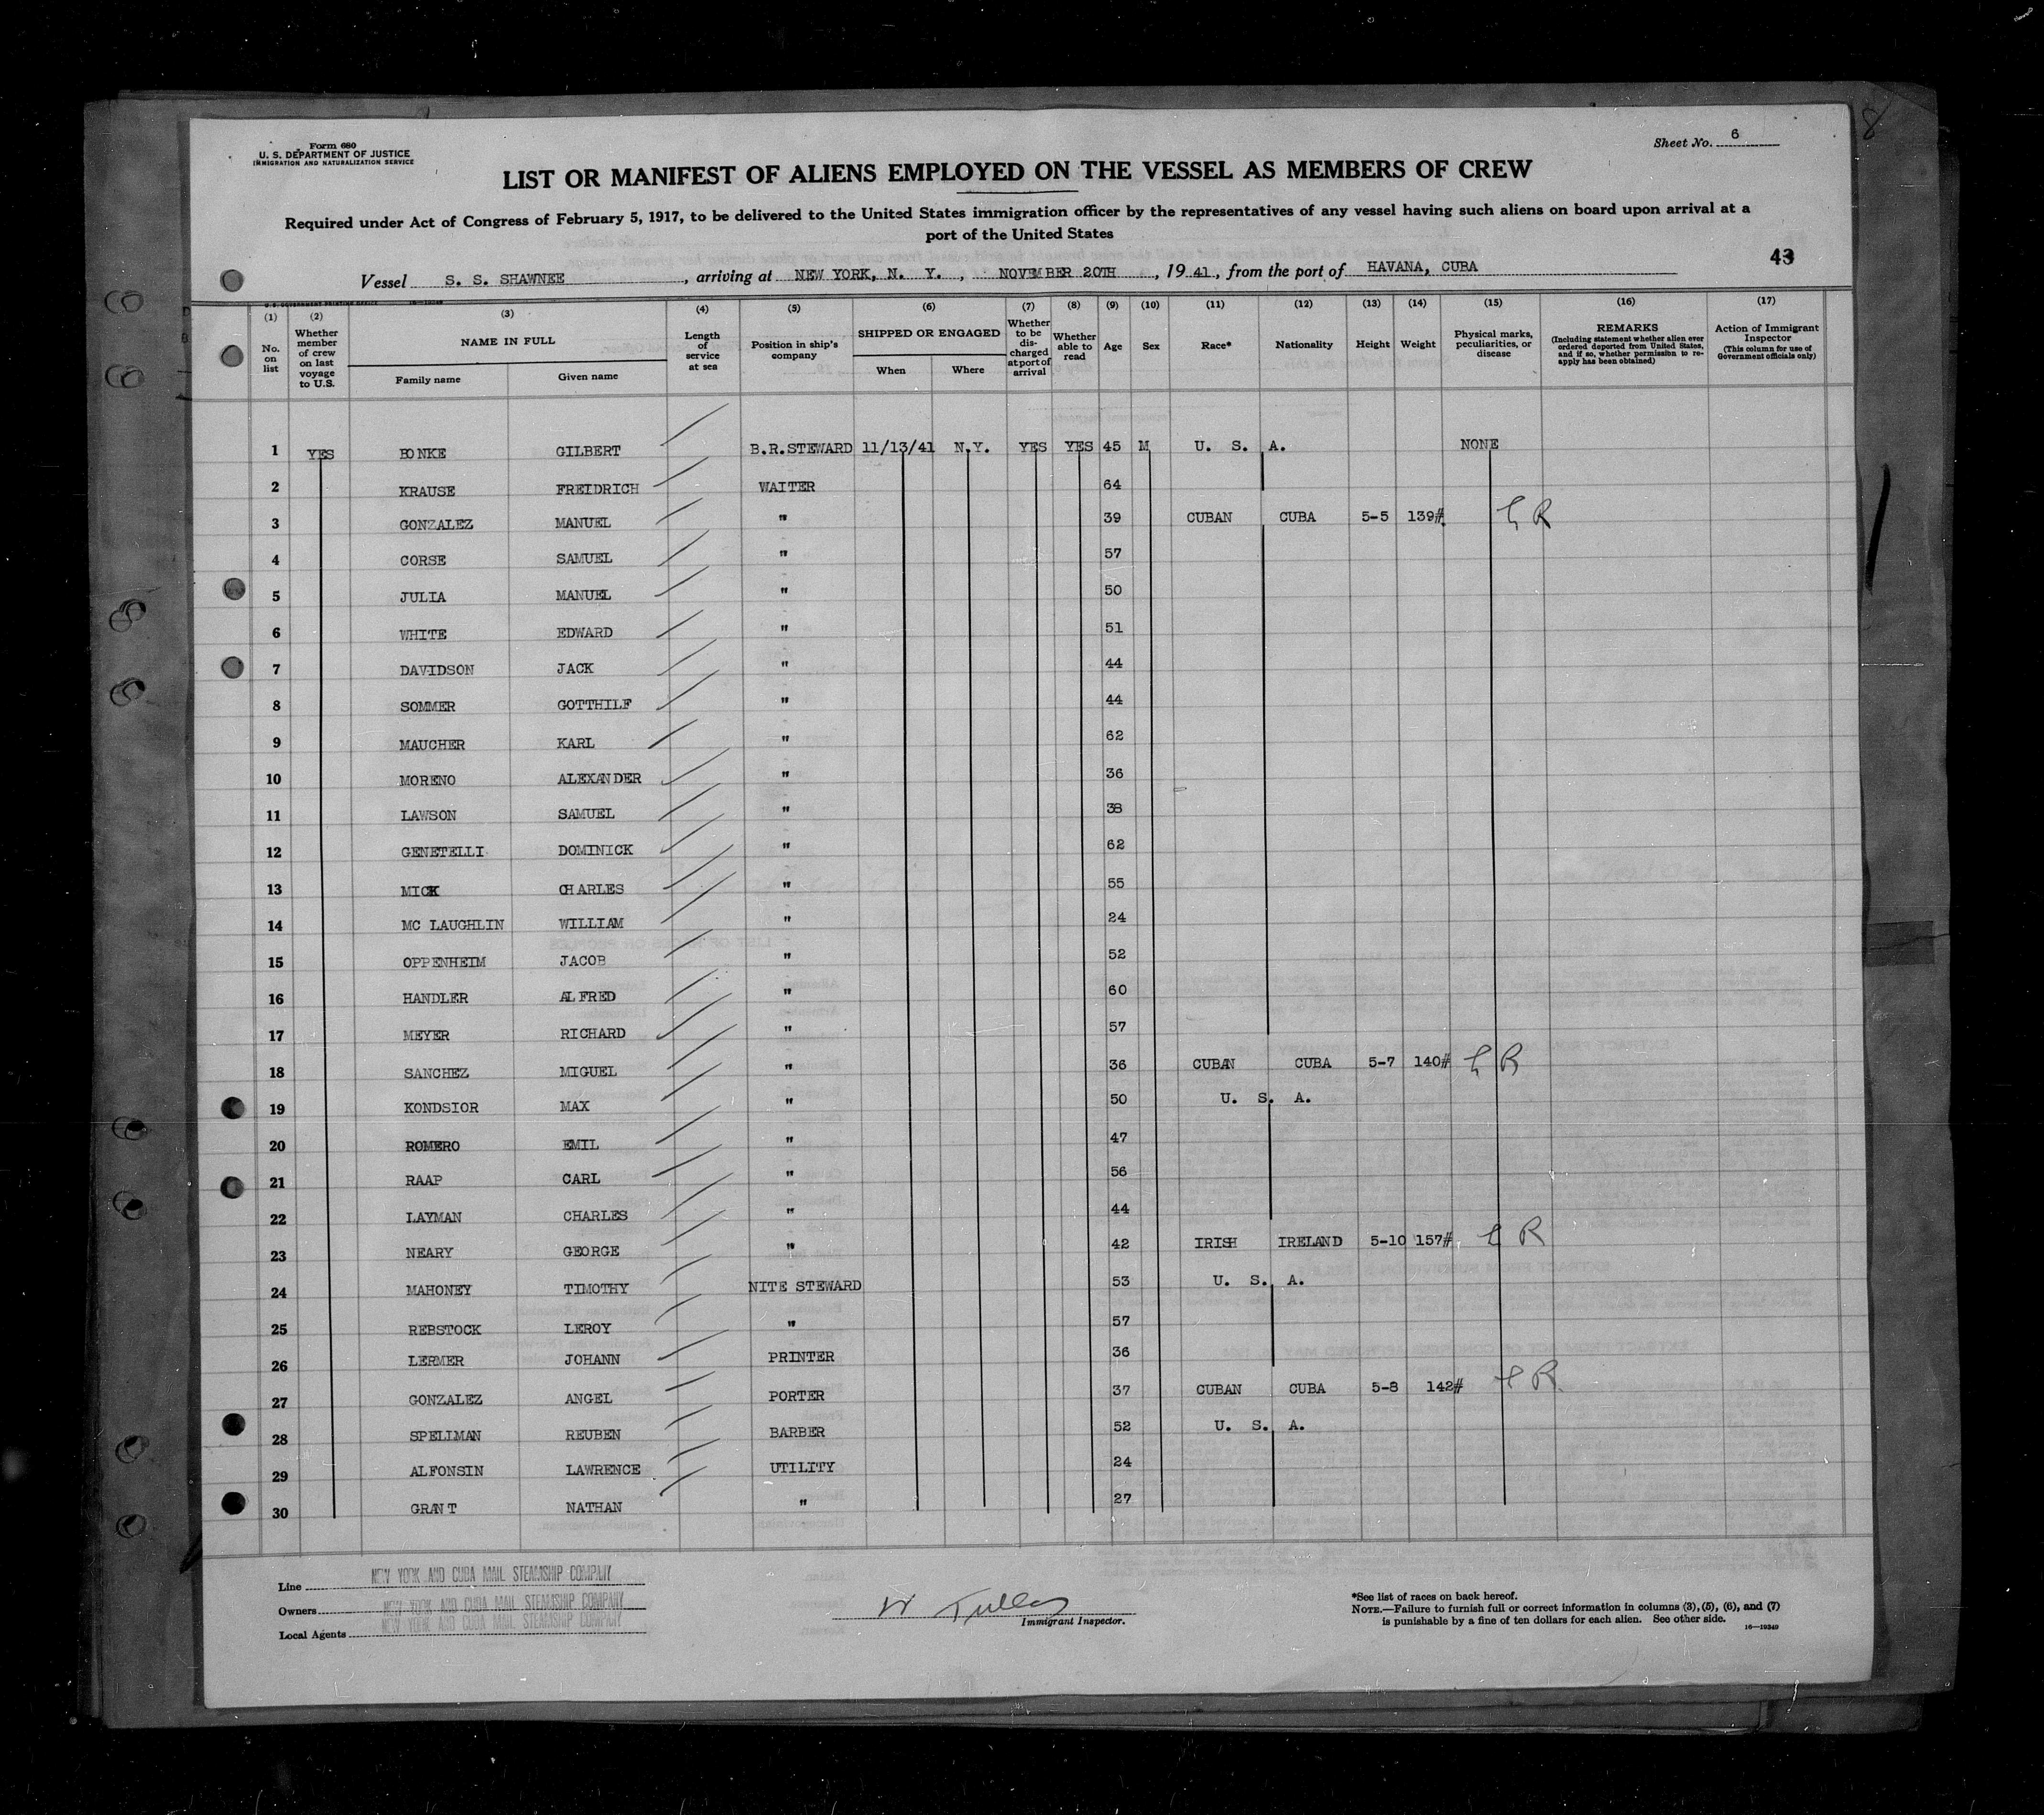 8
Form 680
U. S. DEPARTMENT OF JUSTICE
IMMIGRATION AND NATURALIZATION SERVICE
Sheet No. 6
LIST OR MANIFEST OF ALIENS EMPLOYED ON THE VESSEL AS MEMBERS OF CREW
Required under Act of Congress of February 5, 1917, to be delivered to the United States immigration officer by the representatives of any vessel having such aliens on board upon arrival at a
port of the United States
43
Vessel S. S. SHAWNEE, arriving at NEW YORK, N. Y., NOVEMBER 20TH, 1941, from the port of HAVANA, CUBA
(1) No. on list (2) Whether member of crew on last voyage to U.S. (3) NAME IN FULL Family name Given name (4) Length of service at sea (5) Position in ship's company (6) SHIPPED OR ENGAGED When Where (7) Whether to be discharged at port of arrival (8) Whether able to read (9) Age (10) Sex (11) Race* (12) Nationality (13) Height (14) Weight (15) Physical marks, peculiarities, or disease (16) REMARKS (Including statement whether alien ever ordered deported from United States, and if so, whether permission to reapply has been obtained) (17) Action of Immigrant Inspector (This column for use of Government officials only)
1 YES BONKE GILBERT B.R.STEWARD 11/13/41 N.Y. YES YES 45 M U. S. A. NONE
2 KRAUSE FREIDRICH WAITER 64
3 GONZALEZ MANUEL " 39 CUBAN CUBA 5-5 139#
4 CORSE SAMUEL " 57
5 JULIA MANUEL " 50
6 WHITE EDWARD " 51
7 DAVIDSON JACK " 44
8 SOMMER GOTTHILF " 44
9 MAUCHER KARL " 62
10 MORENO ALEXANDER " 36
11 LAWSON SAMUEL " 38
12 GENETELLI DOMINICK " 62
13 MICK CHARLES " 55
14 MC LAUGHLIN WILLIAM " 24
15 OPPENHEIM JACOB " 52
16 HANDLER ALFRED " 60
17 MEYER RICHARD " 57
18 SANCHEZ MIGUEL " 36 CUBAN CUBA 5-7 140#
19 KONDSIOR MAX " 50 U. S. A.
20 ROMERO EMIL " 47
21 RAAP CARL " 56
22 LAYMAN CHARLES " 44
23 NEARY GEORGE " 42 IRISH IRELAND 5-10 157#
24 MAHONEY TIMOTHY NITE STEWARD 53 U. S. A.
25 REBSTOCK LEROY " 57
26 LERMER JOHANN PRINTER 36
27 GONZALEZ ANGEL PORTER 37 CUBAN CUBA 5-8 142#
28 SPELLMAN REUBEN BARBER 52 U. S. A.
29 ALFONSIN LAWRENCE UTILITY 24
30 GRANT NATHAN " 27
Line NEW YORK AND CUBA MAIL STEAMSHIP COMPANY
Owners NEW YORK AND CUBA MAIL STEAMSHIP COMPANY
Local Agents NEW YORK AND CUBA MAIL STEAMSHIP COMPANY
Immigrant Inspector.
*See list of races on back hereof.
NOTE.—Failure to furnish full or correct information in columns (3), (5), (6), and (7)
is punishable by a fine of ten dollars for each alien. See other side.
16—19349